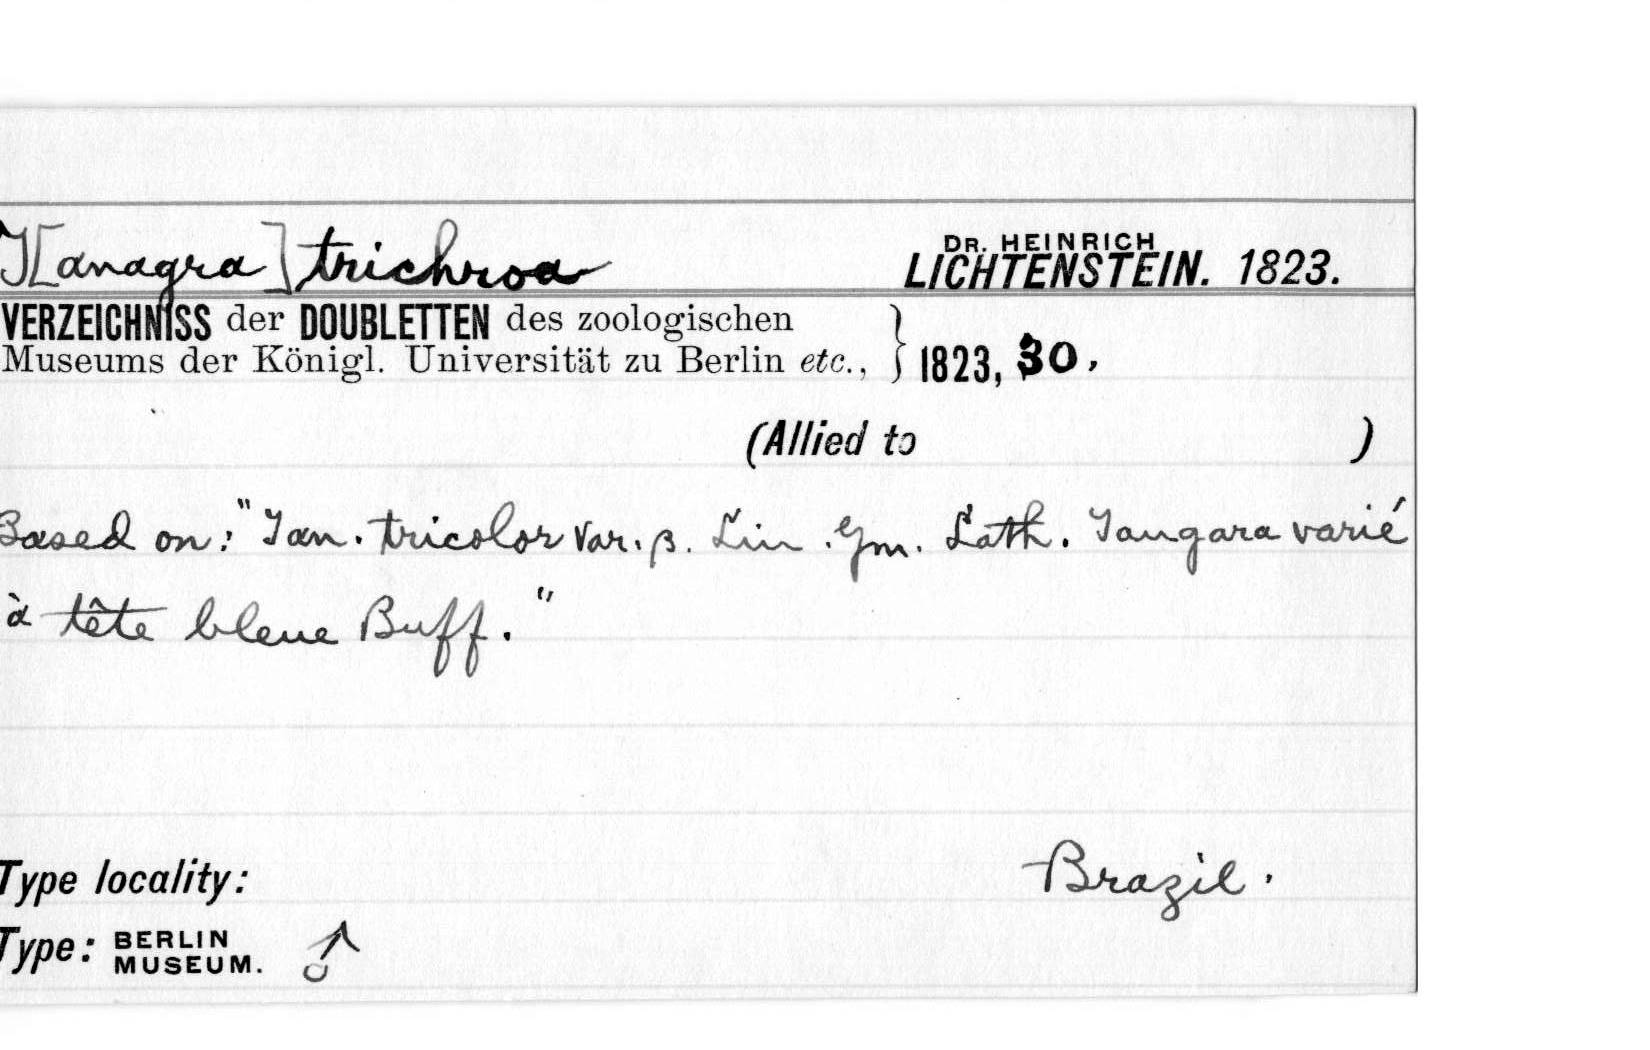 T[anagra] trichroa DR. HEINRICH LICHTENSTEIN. 1823.
VERZEICHNISS der DOUBLETTEN des zoologischen
Museums der Königl. Universität zu Berlin etc., } 1823, 30.
(Allied to )
Based on: "Tan. tricolor Var. β. Lin. Gm. Lath. Tangara varié
à tête bleue Buff."
Type locality: Brazil.
Type: BERLIN MUSEUM. ♂